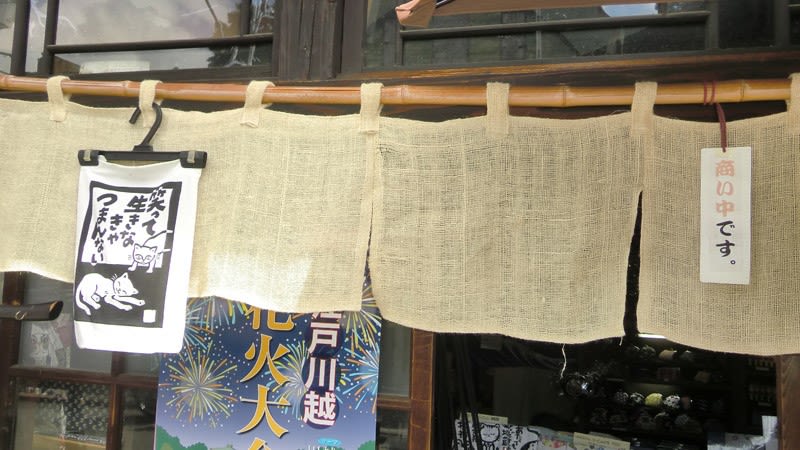 笑って
生きな
きゃ
つまんない
商い中です。
江戸川越
花火大会